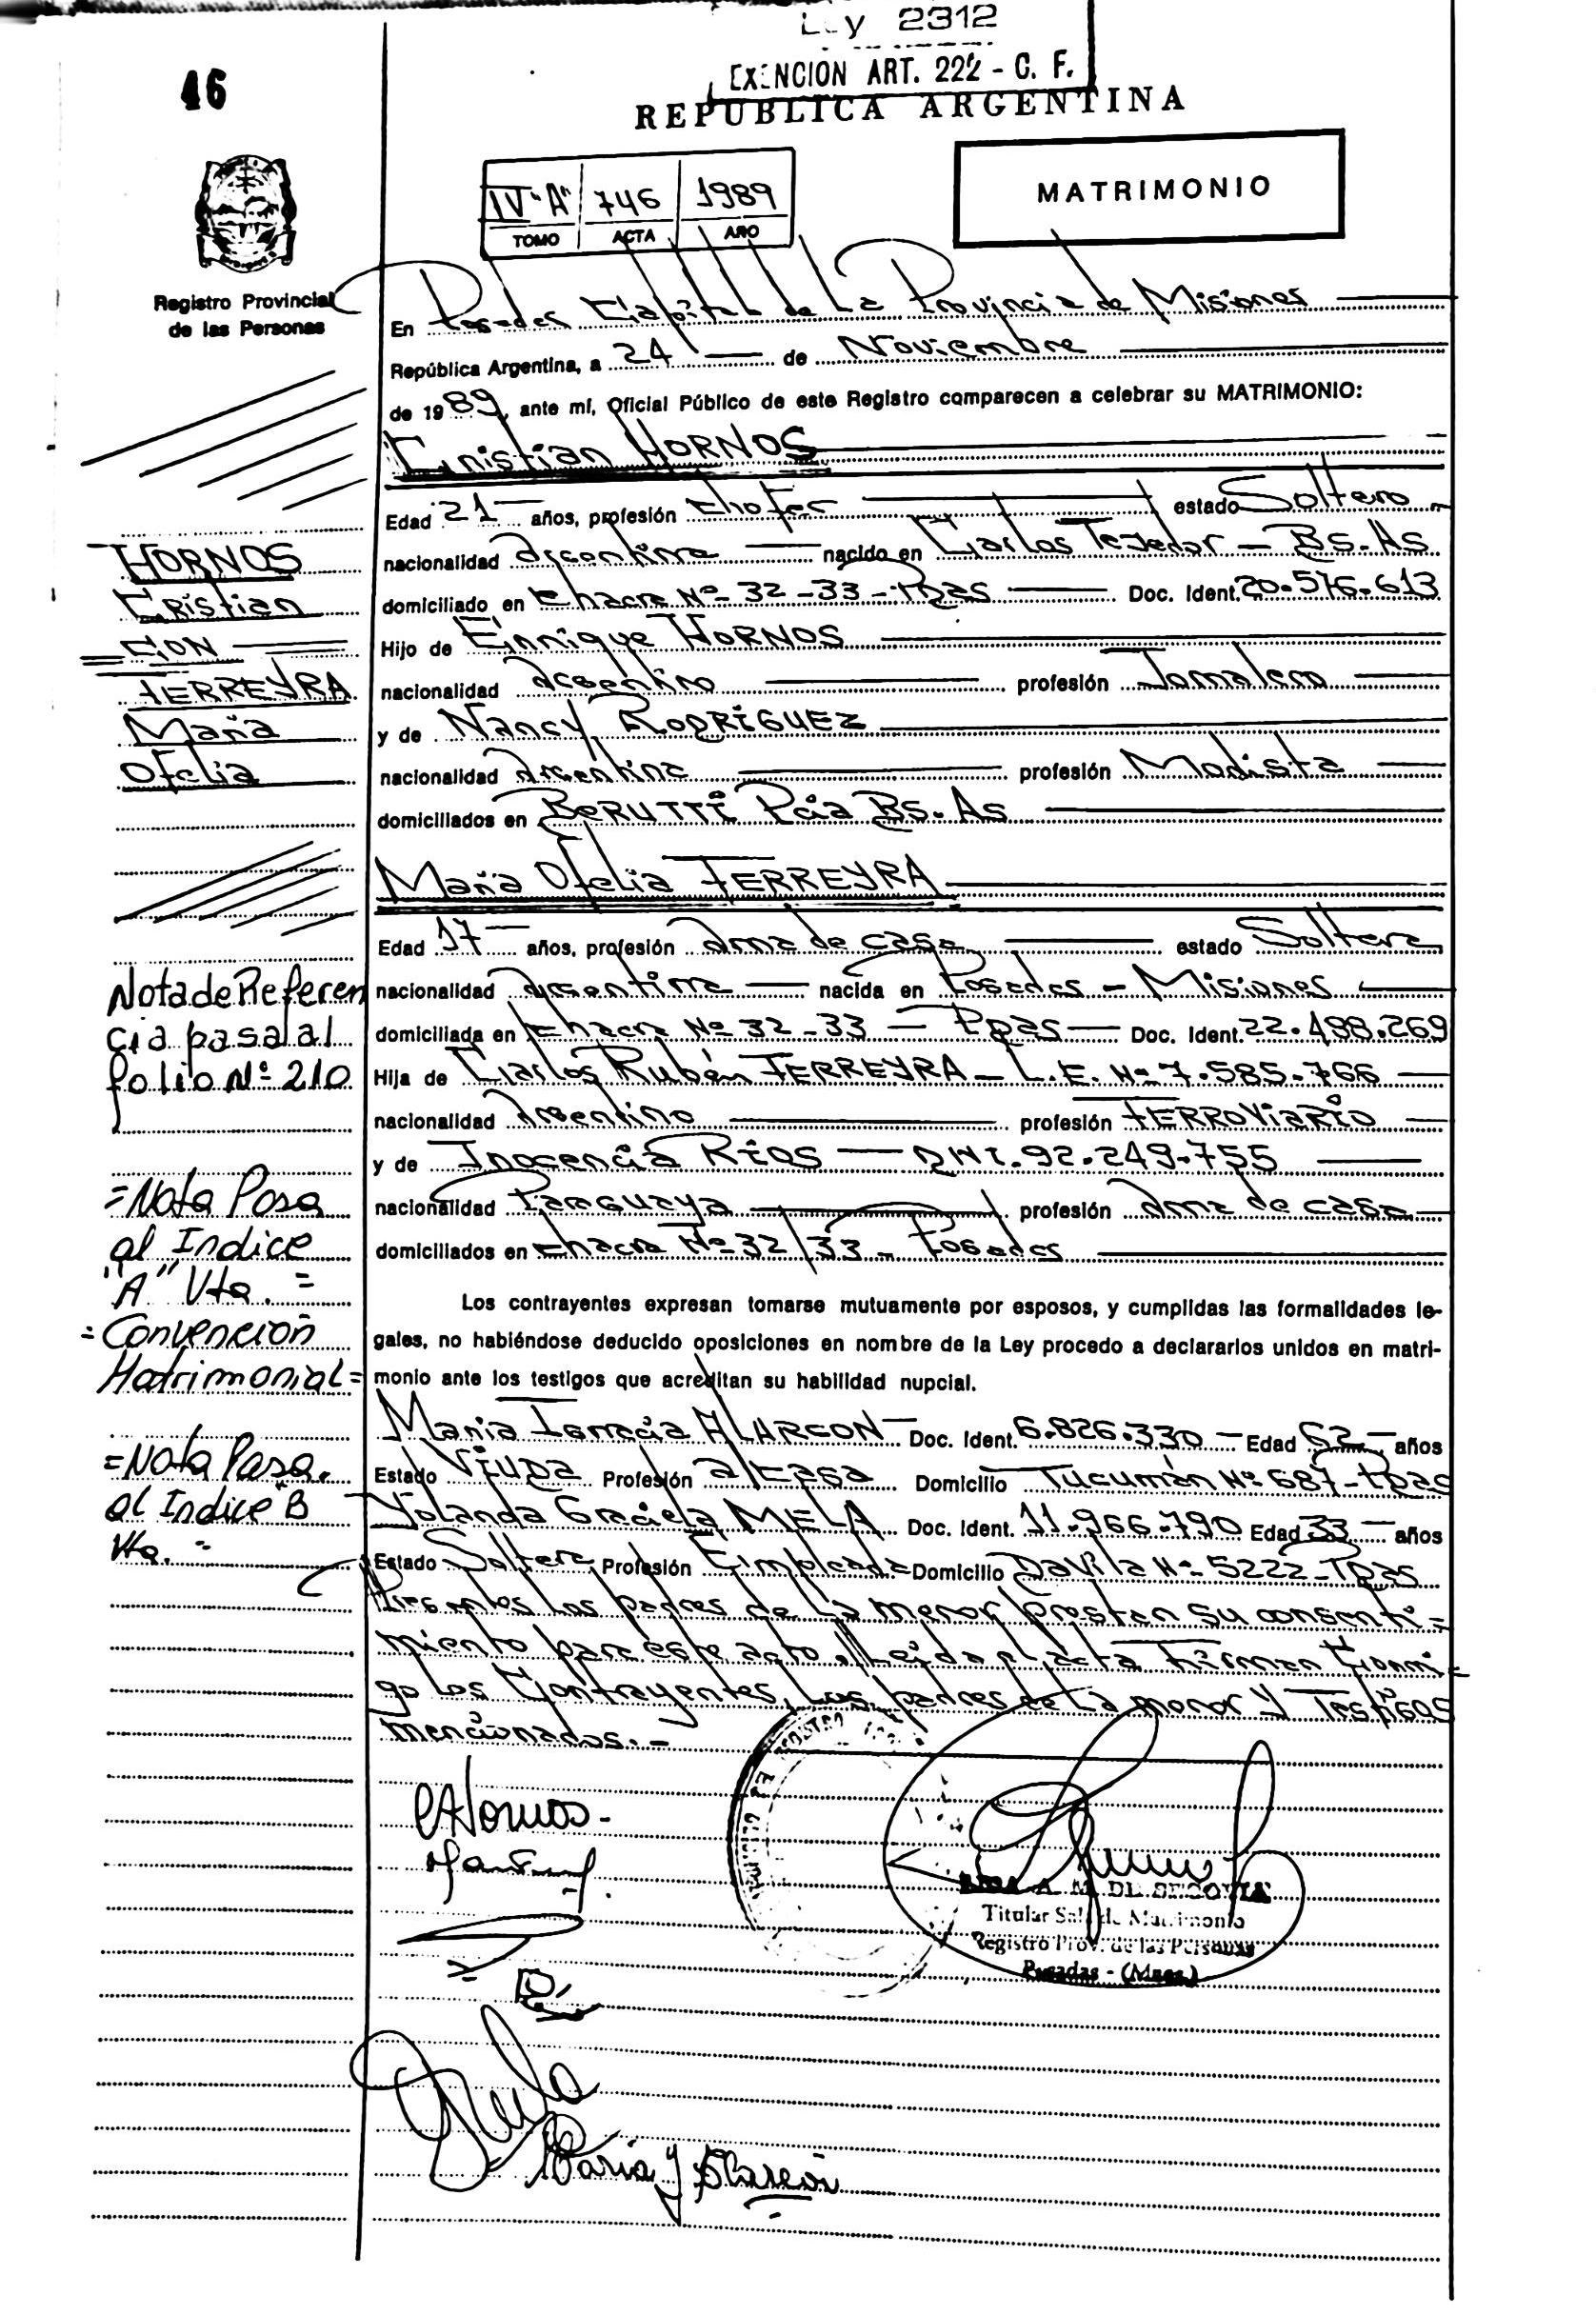 Ley 2312
EXENCION ART. 222 - C. F.
46
REPUBLICA ARGENTINA
IV "A" 746 1989
TOMO ACTA AÑO
MATRIMONIO
Registro Provincial
de las Personas
En Posadas Capital de La Provincia de Misiones
República Argentina, a 24 de Noviembre
de 1989, ante mí, Oficial Público de este Registro comparecen a celebrar su MATRIMONIO:
Cristian HORNOS
Edad 21 años, profesión chofer estado Soltero
nacionalidad argentina nacido en Carlos Tejedor - Bs. As
domiciliado en chacra Nº 32-33 - Ppas Doc. Ident. 20.576.613
Hijo de Enrique HORNOS
nacionalidad argentino profesión Jornalero
y de Nancy RODRIGUEZ
nacionalidad argentina profesión Modista
domiciliados en BERUTTI Pcia Bs. As
María Ofelia FERREYRA
Edad 17 años, profesión ama de casa estado Soltera
nacionalidad argentina nacida en Posadas - Misiones
domiciliada en chacra Nº 32-33 - Ppas Doc. Ident. 22.488.269
Hija de Carlos Rubén FERREYRA - L.E. Nº 7.585.766
nacionalidad argentino profesión FERROViARIO
y de Inocencia RIOS - DNI. 92.249.755
nacionalidad Paraguaya profesión ama de casa
domiciliados en chacra Nº 32/33 - Posadas
Los contrayentes expresan tomarse mutuamente por esposos, y cumplidas las formalidades le-
gales, no habiéndose deducido oposiciones en nombre de la Ley procedo a declararlos unidos en matri-
monio ante los testigos que acreditan su habilidad nupcial.
María Ignacia ALARCON Doc. Ident. 6.826.330 - Edad 62 años
Estado Viuda Profesión a/casa Domicilio Tucumán Nº 687 - Ppas
Yolanda Graciela MELA Doc. Ident. 11.966.790 Edad 33 años
Estado Soltera Profesión Empleada Domicilio Davila Nº 5222 - Ppas
Presentes los padres de la menor, prestan su consenti-
miento para este acto. Leída el acta Firman Conmi-
go los Contrayentes, los padres de la menor y Testigos
mencionados. -
HORNOS
Cristian
CON
FERREYRA
María
Ofelia
Nota de Referen
cia pasa al
folio Nº 210
= Nota Pasa
al Indice
"A" Vta. =
= Convención
Matrimonial =
= Nota Pasa
al Indice "B
Vta. =
CHornos
A. M. DE SEGOVIA
Titular Sala de Matrimonio
Registro Prov. de las Personas
Posadas - (Mnes.)
María Y Alarcón